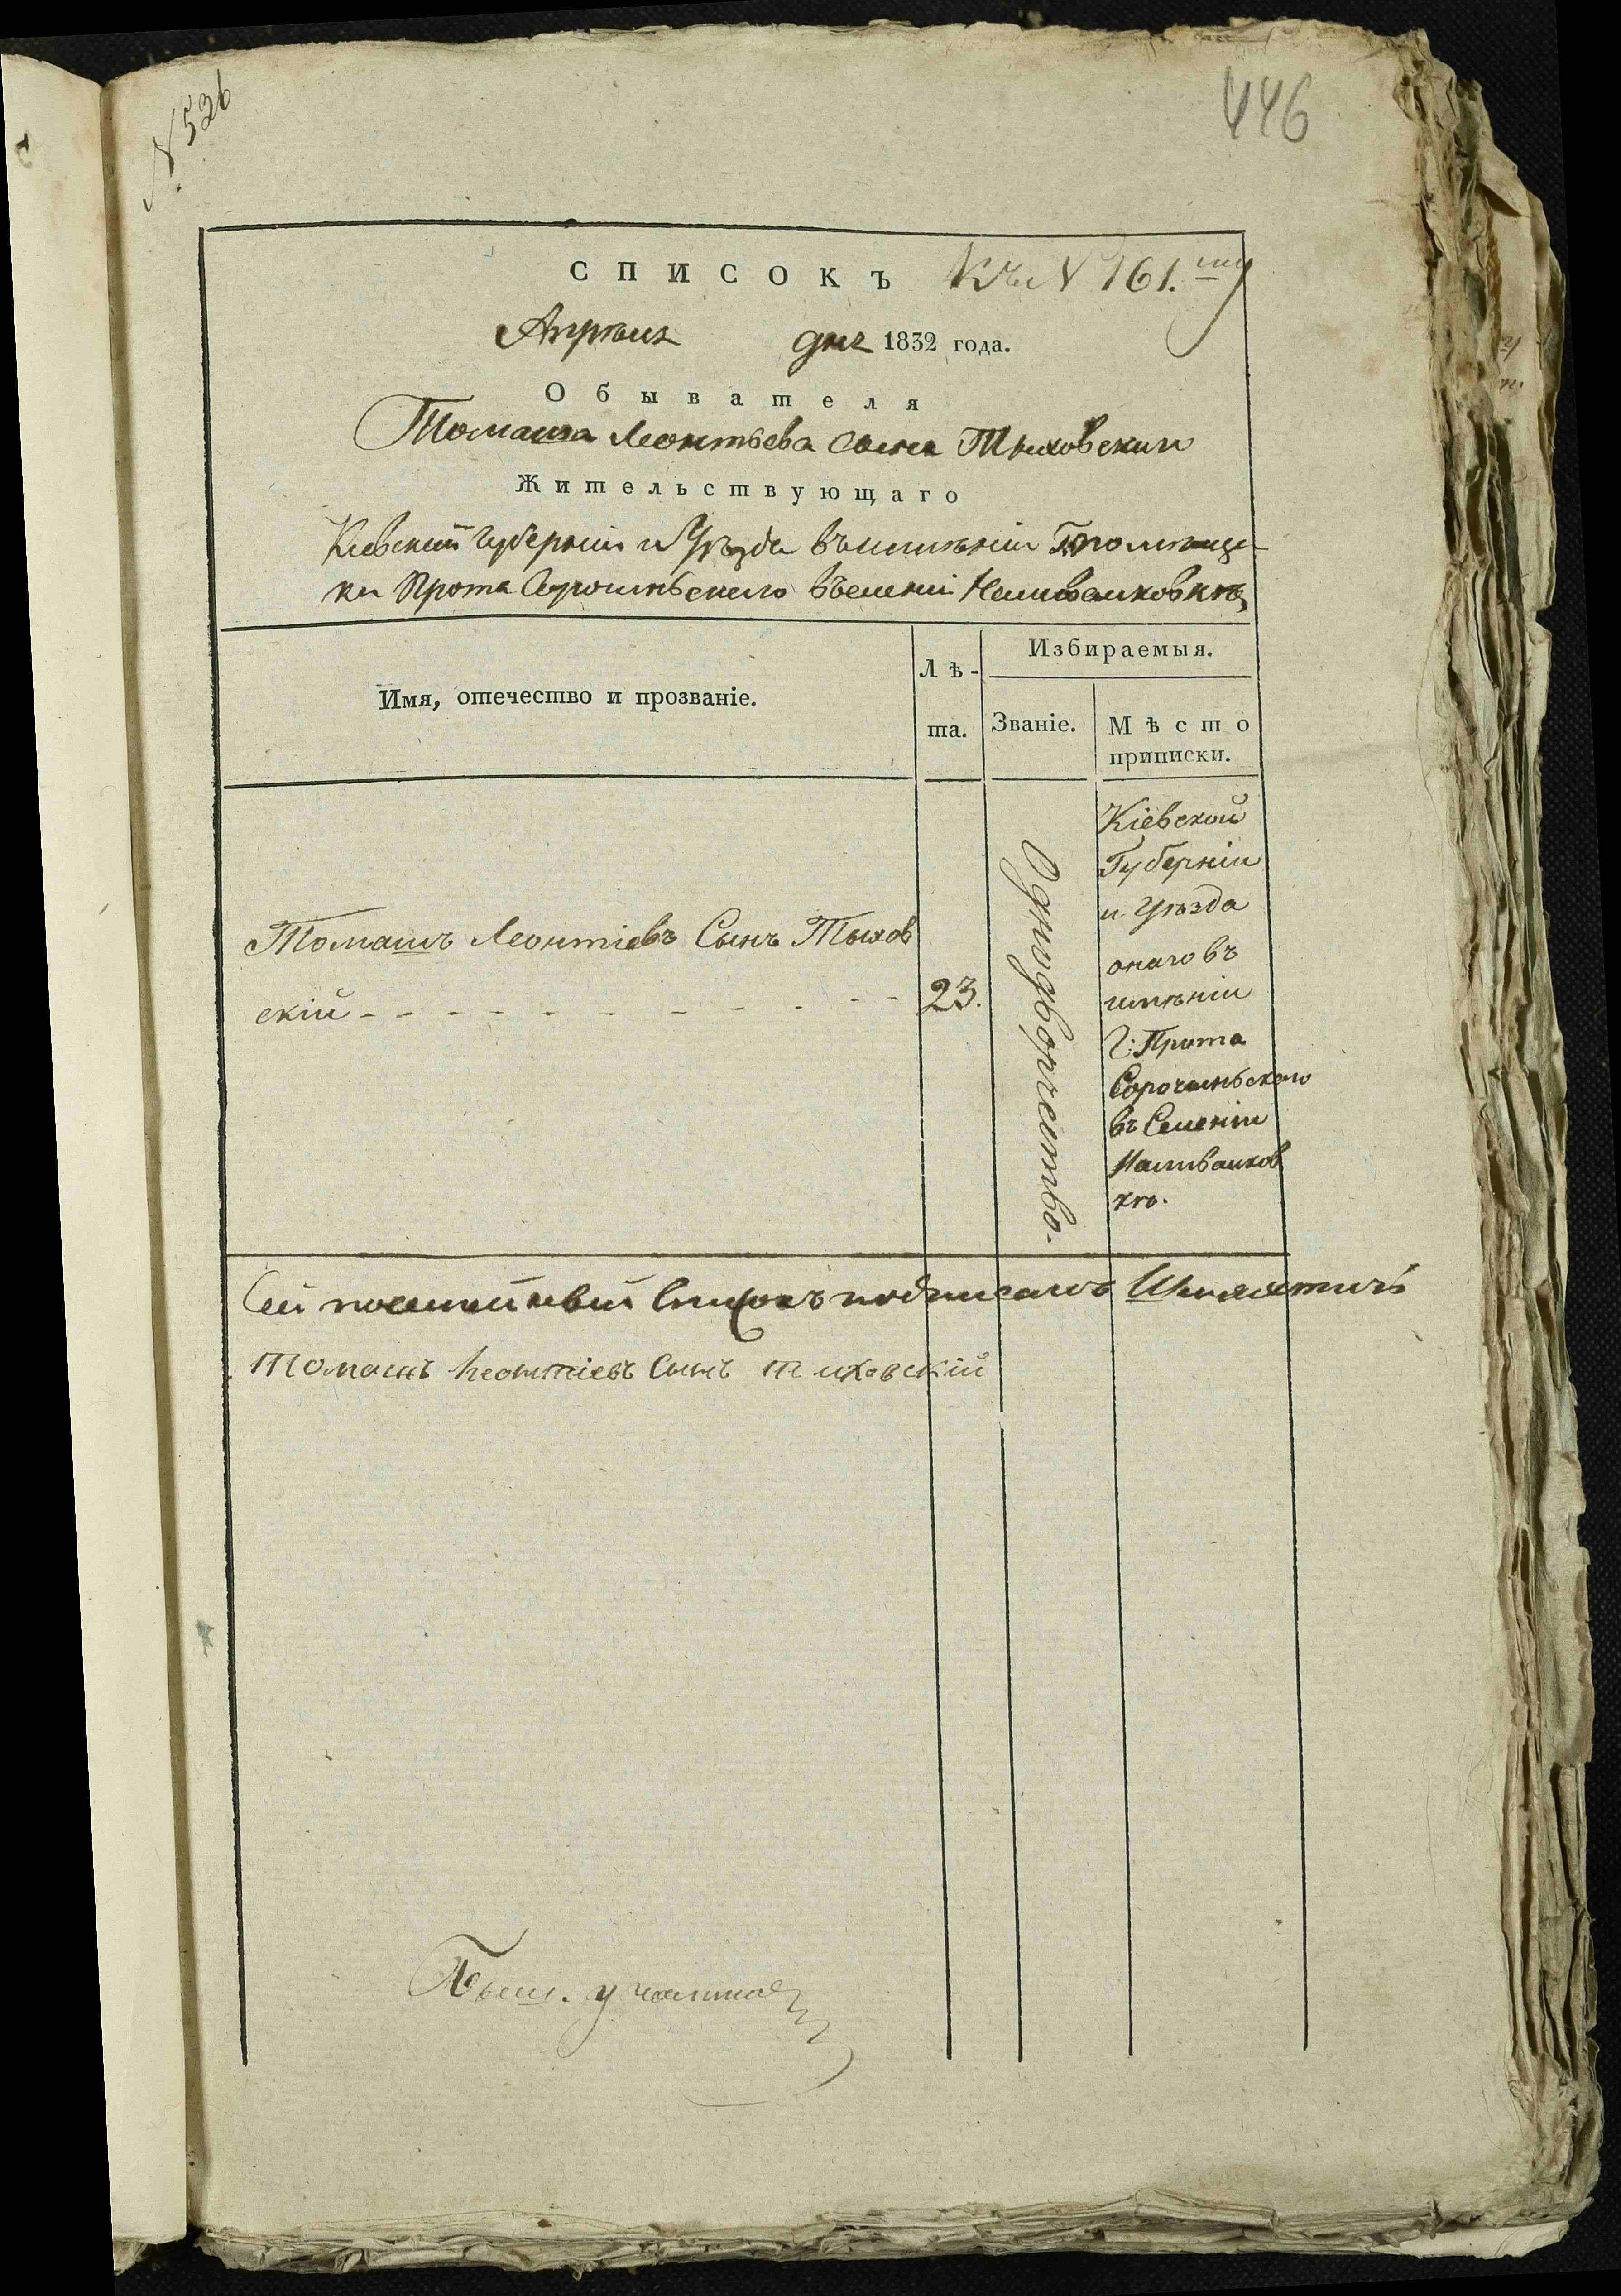 N 526
446
СПИСОКЪ Къ N 161.му
Апрѣля дня 1832 года.
Обывателя
Томаша Леонтьева сына Тыховскаго
Жительствующаго
Кіевской Губерніи и Уѣзда въ имѣніи Г. помѣщи-
ка Прота Сорочинского въ селеніи Наливайковкѣ
Имя, отечество и прозваніе.
Лѣ-
та.
Избираемыя.
Званіе.
Мѣсто
приписки.
Томашъ Леонтіевъ Сынъ Тыхов
скій
23.
Однодворчество.
Кіевской
Губерніи
и Уѣзда
онаго въ
имѣніи
Г: Прота
Сорочиньского
въ Селеніи
Наливайков
кѣ.
Сей посемейный Списокъ подписалъ Шляхтичъ
Томашъ Леонтіевъ Сынъ Тиховскій